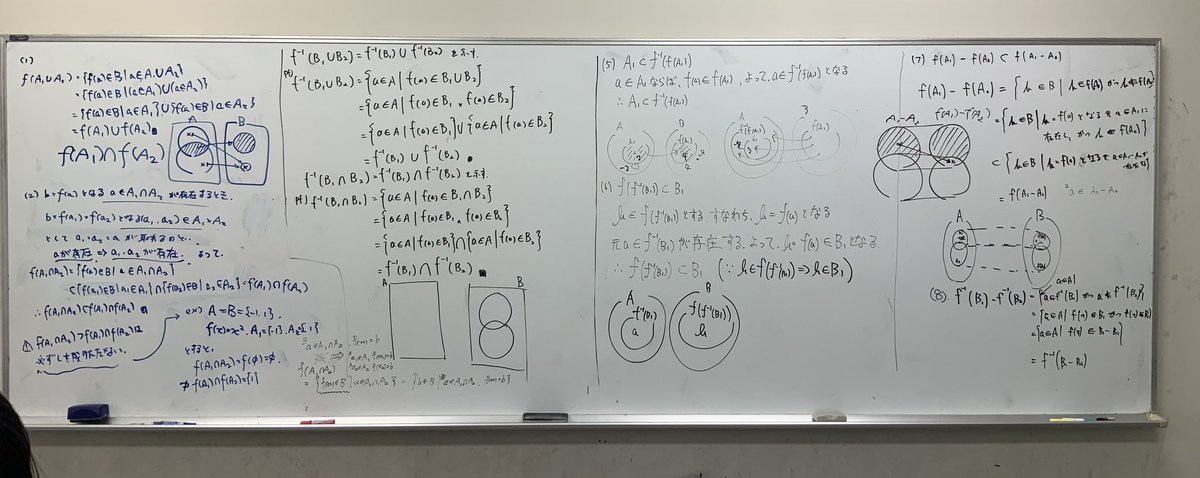 (1)
f(A₁∪A₂) = {f(a)∈B | a∈A₁∪A₂}
= {f(a)∈B | (a∈A₁)∪(a∈A₂)}
= {f(a)∈B | a∈A₁}∪{f(a)∈B | a∈A₂}
= f(A₁)∪f(A₂)
A B
f(A₁)∩f(A₂)
(2) b=f(a)となる a∈A₁∩A₂ が存在するとき
b=f(a₁)=f(a₂)となる(a₁,a₂)∈A₁×A₂
として a₁,a₂=a が取れるので、
aが存在 ⇒ a₁,a₂が存在. よって
f(A₁∩A₂)={f(a)∈B | a∈A₁∩A₂}
⊂{f(a₁)∈B | a₁∈A₁}∩{f(a₂)∈B | a₂∈A₂}=f(A₁)∩f(A₂)
∴ f(A₁∩A₂)⊂f(A₁)∩f(A₂)
f(A₁∩A₂)⊃f(A₁)∩f(A₂)は
必ずしも成り立たない.
ex) A=B={-1,1}
f(x)=x², A₁={-1}, A₂={1}
とすると,
f(A₁∩A₂)=f(∅)=∅.
f(A₁)∩f(A₂)={1}
f⁻¹(B₁∪B₂)=f⁻¹(B₁)∪f⁻¹(B₂) を示す.
pf) f⁻¹(B₁∪B₂)={a∈A | f(a)∈B₁∪B₂}
={a∈A | f(a)∈B₁ ∨ f(a)∈B₂}
={a∈A | f(a)∈B₁}∪{a∈A | f(a)∈B₂}
=f⁻¹(B₁)∪f⁻¹(B₂)
f⁻¹(B₁∩B₂)=f⁻¹(B₁)∩f⁻¹(B₂) を示す.
pf) f⁻¹(B₁∩B₂)={a∈A | f(a)∈B₁∩B₂}
={a∈A | f(a)∈B₁ ∧ f(a)∈B₂}
={a∈A | f(a)∈B₁}∩{a∈A | f(a)∈B₂}
=f⁻¹(B₁)∩f⁻¹(B₂)
A B
f(A₁∩A₂)
(5) A₁⊂f⁻¹(f(A₁))
a∈A₁ならば, f(a)∈f(A₁), よって, a∈f⁻¹(f(A₁))となる
∴ A₁⊂f⁻¹(f(A₁))
A B A B
(6) f(f⁻¹(B₁))⊂B₁
b∈f(f⁻¹(B₁))とする. すなわち, b=f(a)となる
元a∈f⁻¹(B₁)が存在する. よって, b=f(a)∈B₁となる.
∴ f(f⁻¹(B₁))⊂B₁ (∵ b∈f(f⁻¹(B₁))⇒b∈B₁)
A B
f⁻¹(B₁) f(f⁻¹(B₁))
a b
(7) f(A₁)-f(A₂)⊂f(A₁-A₂)
f(A₁)-f(A₂)={b∈B | b∈f(A₁)かつb∉f(A₂)}
A₁-A₂ f(A₁)-f(A₂)
={b∈B | b=f(a)となるa∈A₁が
存在し, かつb∉f(A₂)}
⊂{b∈B | b=f(a)となるa∈A₁-A₂が
=f(A₁-A₂)
A B
(8) f⁻¹(B₁)-f⁻¹(B₂)={a∈A | a∈f⁻¹(B₁)かつa∉f⁻¹(B₂)}
={a∈A | f(a)∈B₁かつf(a)∉B₂}
={a∈A | f(a)∈B₁-B₂}
=f⁻¹(B₁-B₂)